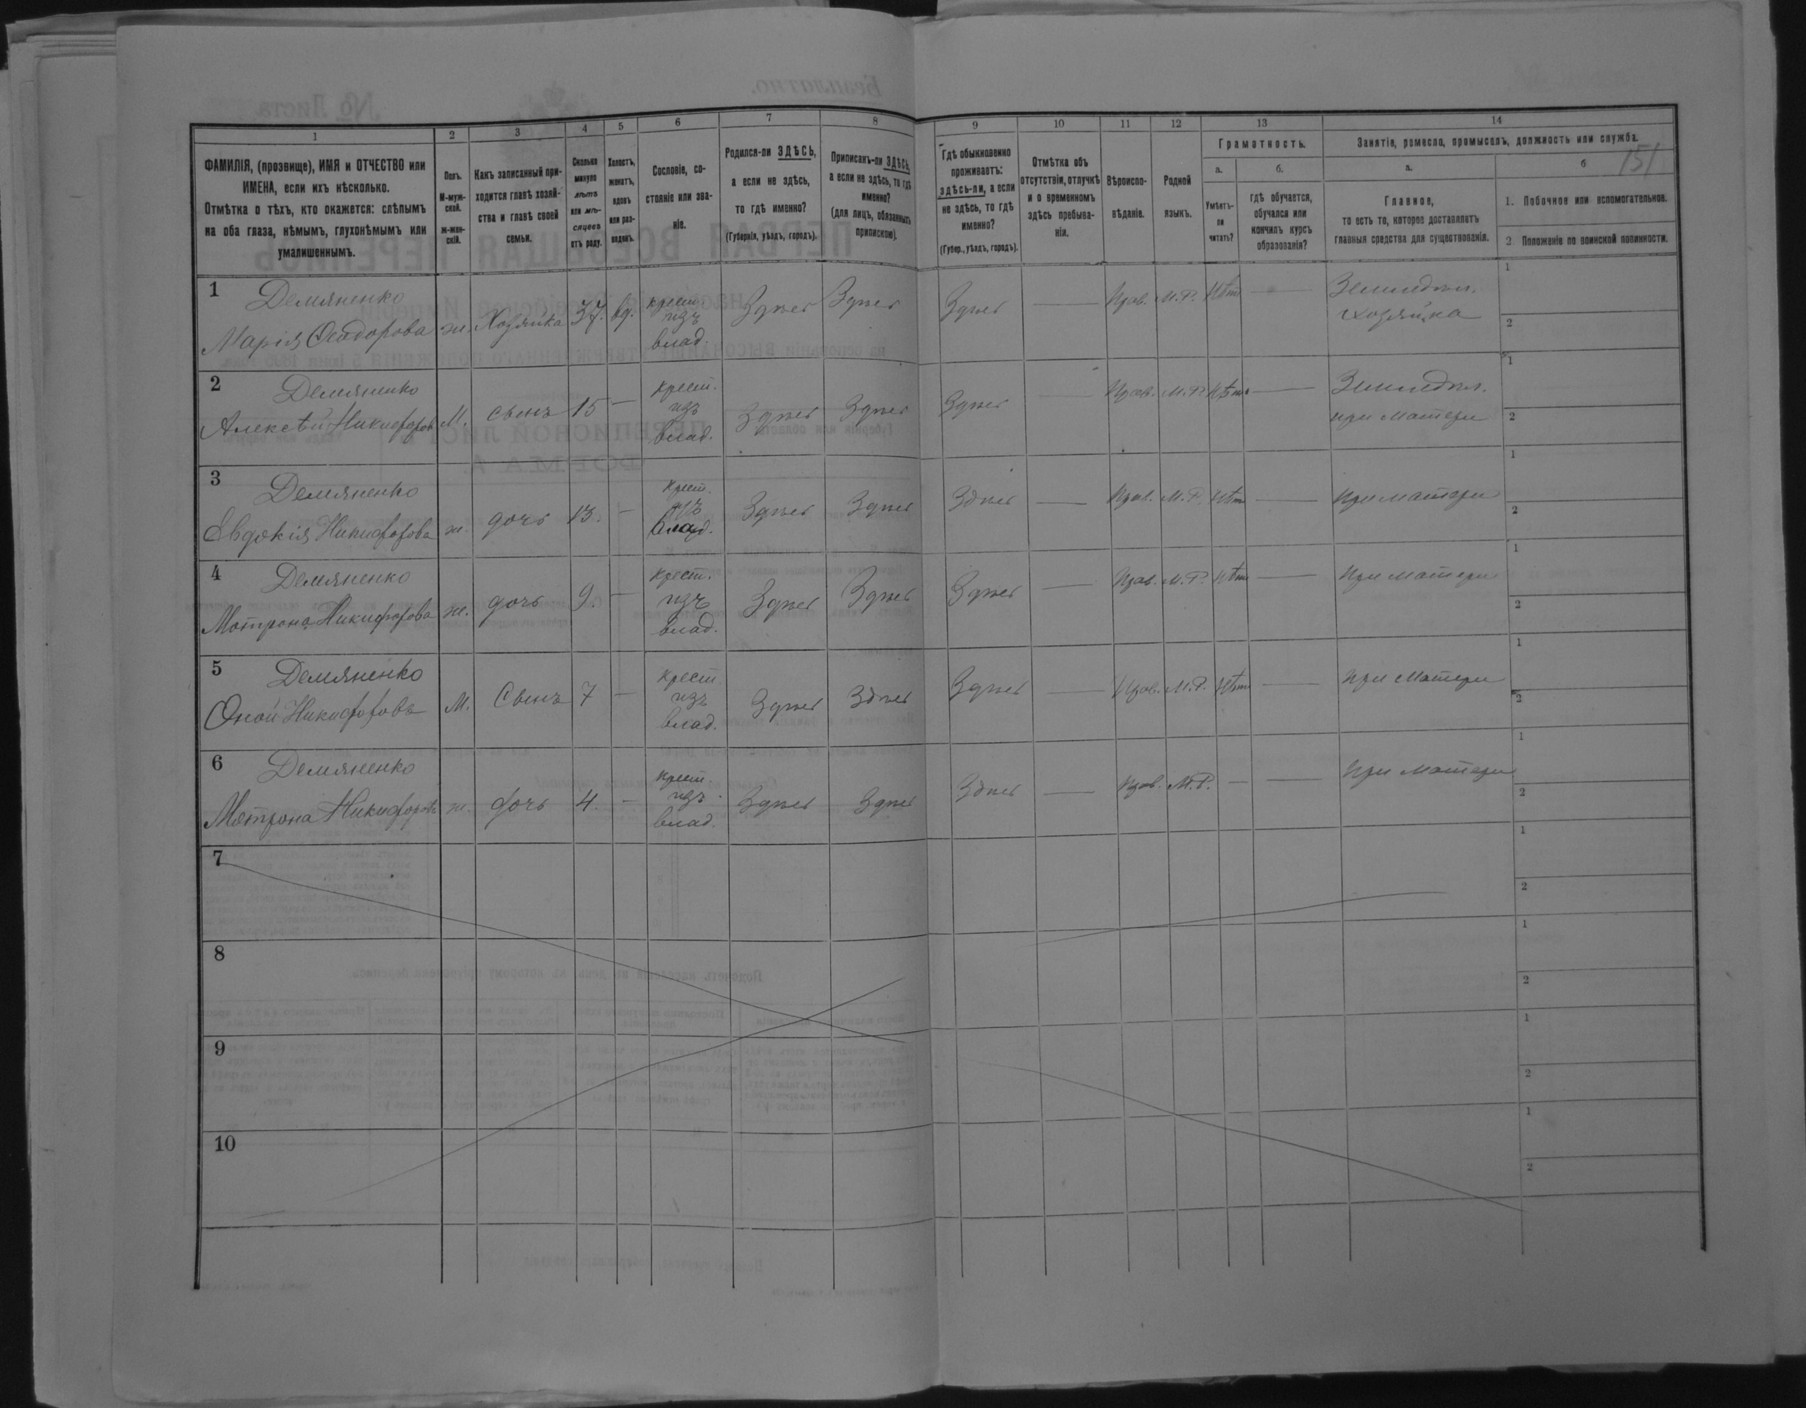 1 2 3 4 5 6 7 8 9 10 11 12 13 14
ФАМИЛІЯ, (прозвище), ИМЯ и ОТЧЕСТВО или
ИМЕНА, если ихъ нѣсколько.
Отмѣтка о тѣхъ, кто окажется: слѣпымъ
на оба глаза, нѣмымъ, глухонѣмымъ или
умалишеннымъ.
Полъ.
М-муж-
ской.
Ж-жен-
скій.
Какъ записанный при-
ходится главѣ хозяй-
ства и главѣ своей
семьи.
Сколько
минуло
лѣтъ
или мѣ-
сяцевъ
отъ роду.
Холостъ,
женатъ,
вдовъ
или раз-
веденъ.
Сословіе, со-
стояніе или зва-
ніе.
Родился-ли ЗДѢСЬ,
а если не здѣсь,
то гдѣ именно?
(Губернія, уѣздъ, городъ).
Приписанъ-ли ЗДѢСЬ,
а если не здѣсь, то гдѣ
именно?
(для лицъ, обязанныхъ
припискою).
Гдѣ обыкновенно
проживаетъ:
здѣсь-ли, а если
не здѣсь, то гдѣ
именно?
(Губер., уѣздъ, городъ).
Отмѣтка объ
отсутствіи, отлучкѣ
и о временномъ
здѣсь пребыва-
ніи.
Вѣроиспо-
вѣданіе.
Родной
языкъ.
Грамотность.
а.
Умѣетъ-
ли
читать?
б.
гдѣ обучается,
обучался или
кончилъ курсъ
образованія?
Занятіе, ремесло, промыселъ, должность или служба.
151
а.
Главное,
то есть то, которое доставляетъ
главныя средства для существованія.
б
1. Побочное или вспомогательное.
2. Положеніе по воинской повинности.
1 Демяненко
Марія Сидорова ж. Хозяйка 37. вд. крест. изъ влад. Здѣсь Здѣсь Здѣсь — Прав. М.Р. нѣтъ — Земледѣл. хозяйка
1
2
2 Демяненко
Алексѣй Никифоровъ М. сынъ 15 — крест. изъ влад. Здѣсь Здѣсь Здѣсь — Прав. М.Р. нѣтъ — Земледѣл. при матери
1
2
3 Демяненко
Евдокія Никифорова ж. дочь 13. — крест. изъ влад. Здѣсь Здѣсь Здѣсь — Прав. М.Р. нѣтъ — при матери
1
2
4 Демяненко
Мотрона Никифорова ж. дочь 9. — крест. изъ влад. Здѣсь Здѣсь Здѣсь — Прав. М.Р. нѣтъ — при матери
1
2
5 Демяненко
Никифоровъ М. Сынъ 7 — крест. изъ влад. Здѣсь Здѣсь Здѣсь — Прав. М.Р. нѣтъ — при матери
1
2
6 Демяненко
Мотрона Никифорова ж. дочь 4. — крест. изъ влад. Здѣсь Здѣсь Здѣсь — Прав. М.Р. — — при матери
1
2
7
1
2
8
1
2
9
1
2
10
1
2